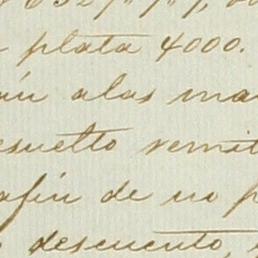 plata 4000.
alas ma
esuelto remit
afin de no p
descuento,